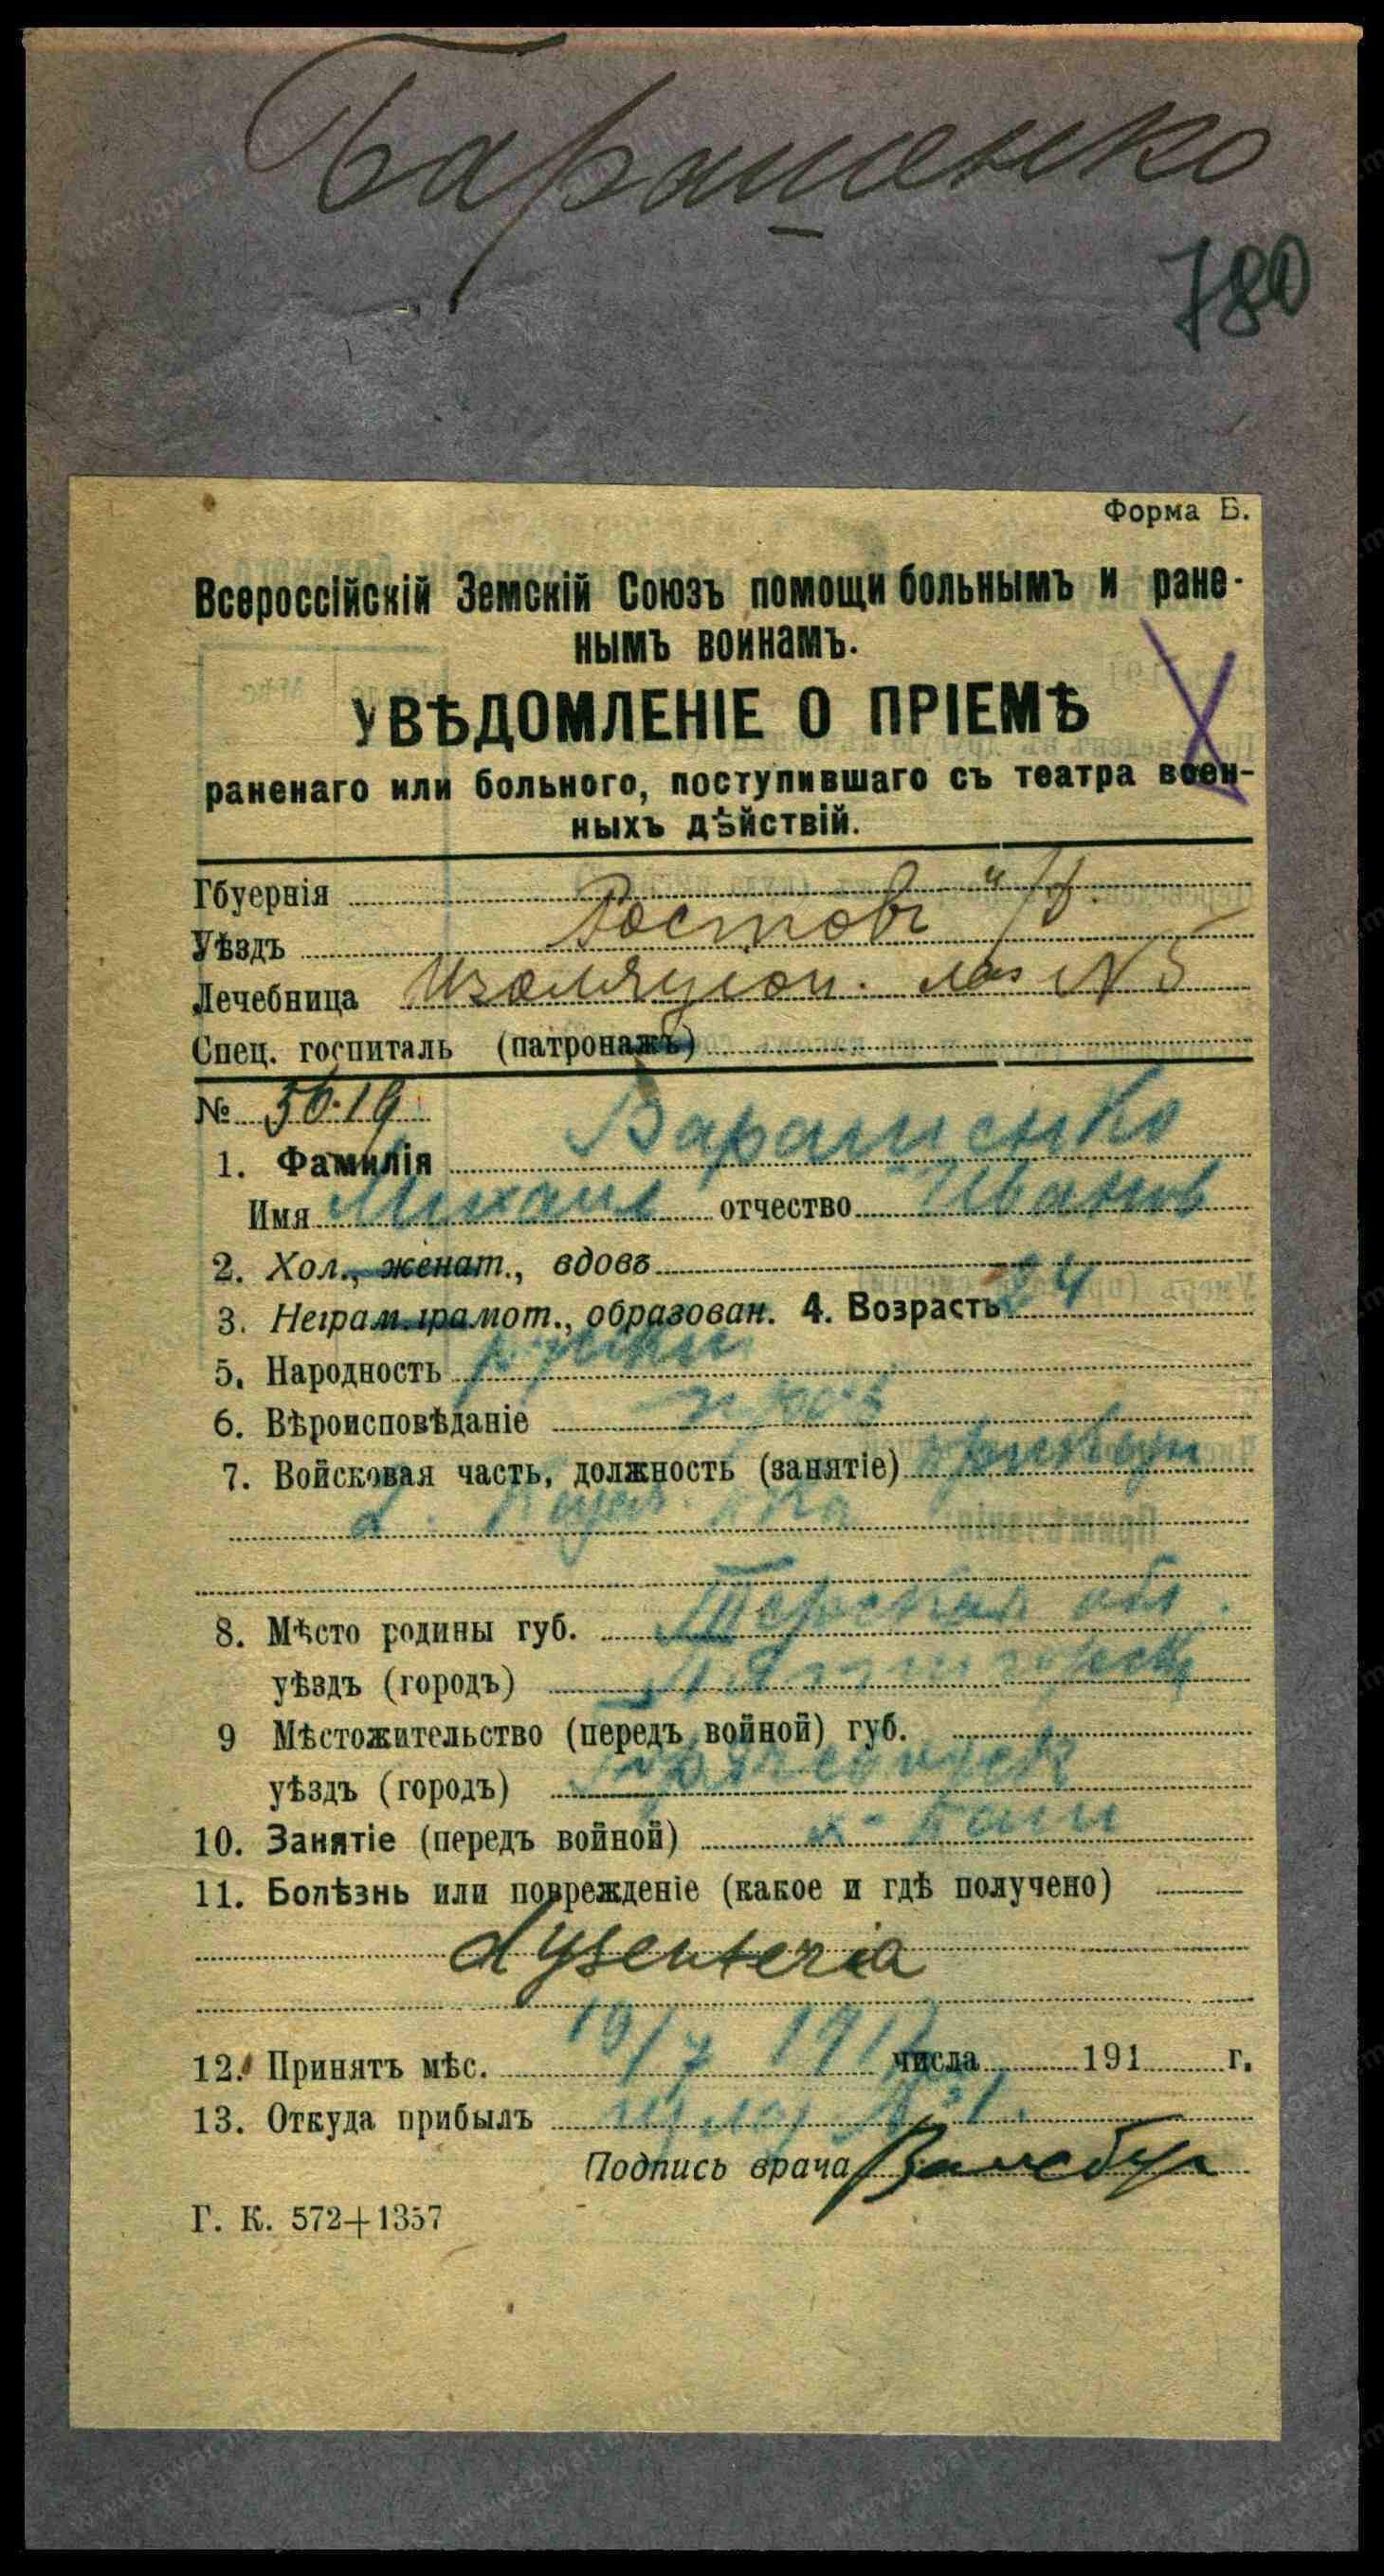 Барашенко
780
Форма Б.
Всероссійскій Земскій Союзъ помощи больнымъ и ране-
нымъ воинамъ.
УВѢДОМЛЕНІЕ О ПРІЕМѢ
раненаго или больного, поступившаго съ театра воен-
ныхъ дѣйствій.
Гбуернія
Уѣздъ Ростовъ н/Д.
Лечебница Изоляціон. лаз N 5
Спец. госпиталь (патронажъ)
№ 5619
1. Фамилія Барашенко
Имя Михаил отчество Иванов
2. Хол., женат., вдовъ
3. Неграм. грамот., образован. 4. Возрастъ 24
5. Народность русский
6. Вѣроисповѣданіе прав
7. Войсковая часть, должность (занятіе)
2.
8. Мѣсто родины губ. Терская обл.
уѣздъ (городъ) Пятигорск
9 Мѣстожительство (передъ войной) губ.
уѣздъ (городъ)
10. Занятіе (передъ войной)
11. Болѣзнь или поврежденіе (какое и гдѣ получено)
dysenteria
12. Принятъ мѣс. 19/7 1917 числа 191 г.
13. Откуда прибылъ
Подпись врача
Г. К. 572+1357